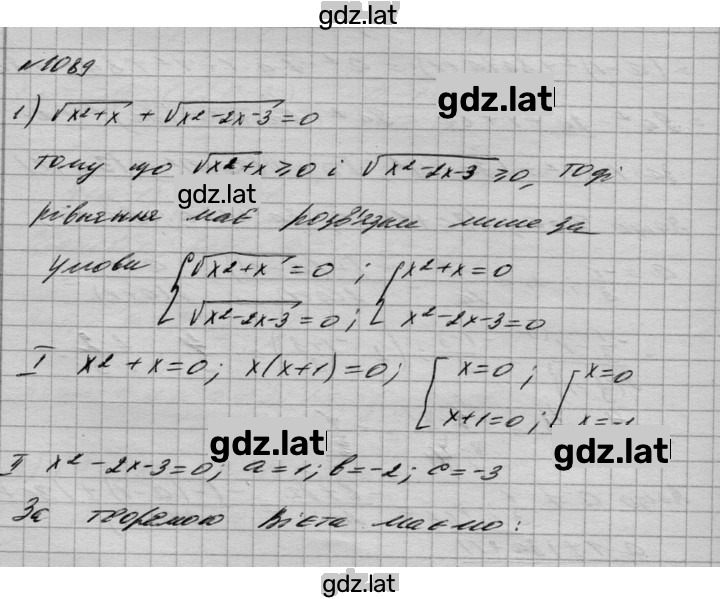 gdz.lat
№1089
gdz.lat
1) √x²+x + √x²-2x-3 = 0
тому що √x²+x ≥ 0 і √x²-2x-3 ≥ 0, тоді
gdz.lat
рівняння має розв'язки лише за
умови { √x²+x = 0 ; { x²+x=0
√x²-2x-3 = 0 ; x²-2x-3=0
I x²+x=0; x(x+1)=0; [ x=0 ; [ x=0
x+1=0 ; x=-1
gdz.lat gdz.lat
II x²-2x-3=0; a=1; b=-2; c=-3
За теоремою Вієта маємо:
gdz.lat